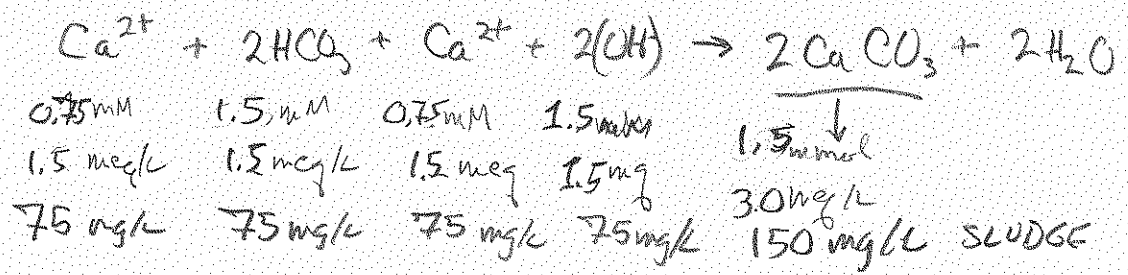 Ca²⁺ + 2HCO₃ + Ca²⁺ + 2(OH) → 2CaCO₃ + 2H₂O
0.75mM 1.5mM 0.75mM 1.5 1.5mmol
1.5 meq/L 1.5 meq/L 1.5 meq 1.5 3.0 meq/L
75 mg/L 75 mg/L 75 mg/L 75mg/L 150 mg/L SLUDGE